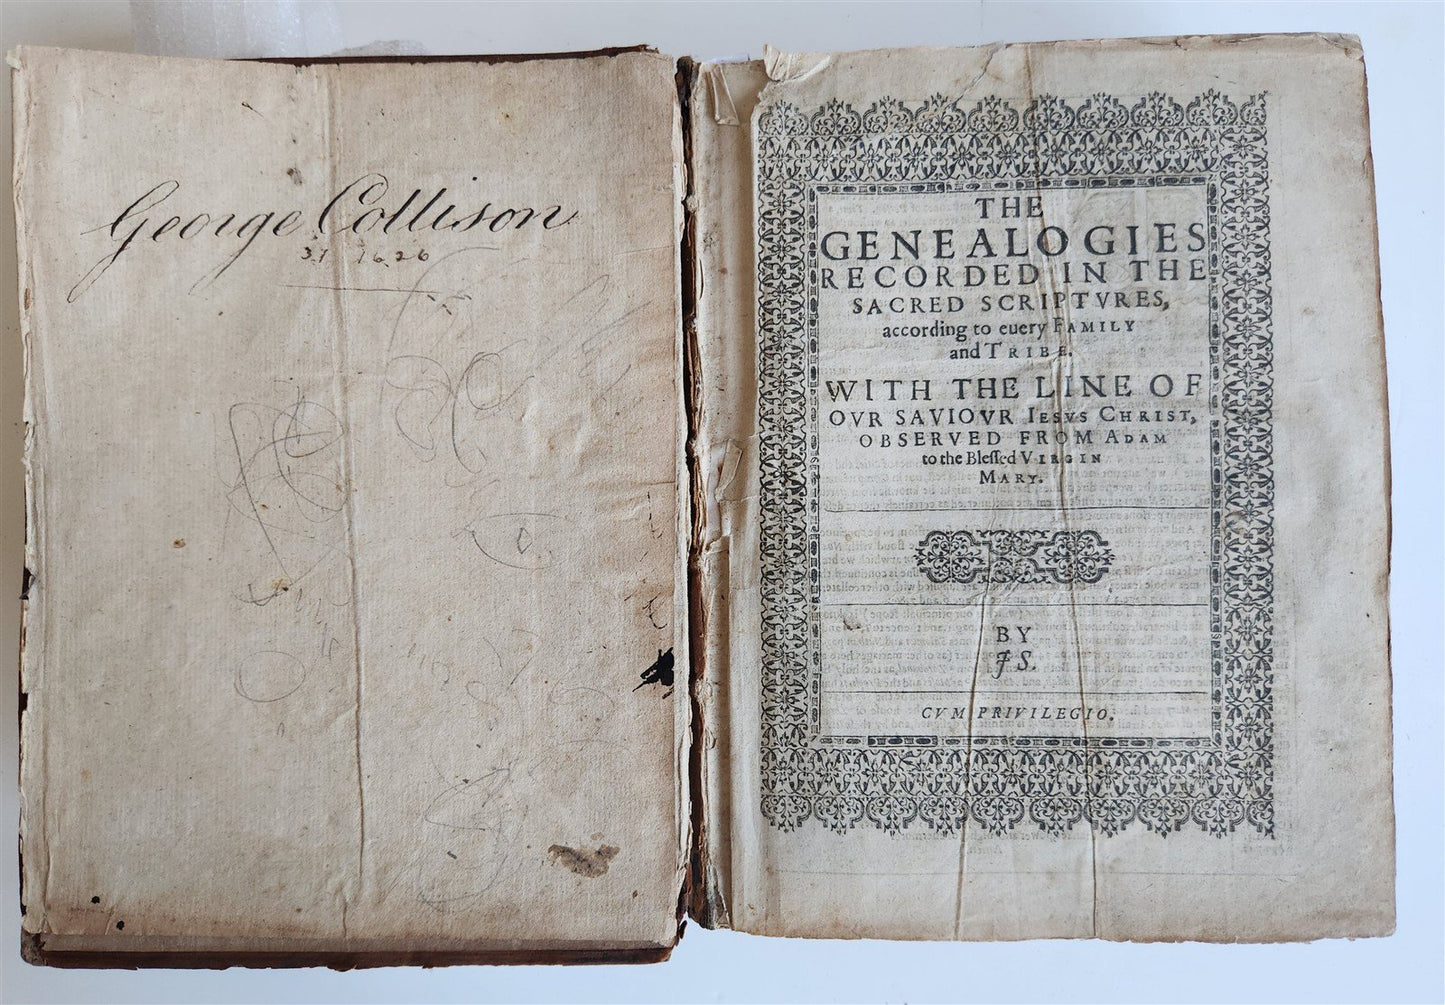 George Collison
31 1626
THE
GENEALOGIES
RECORDED IN THE
SACRED SCRIPTVRES,
according to euery FAMILY
and TRIBE.
WITH THE LINE OF
OVR SAVIOVR IESVS CHRIST,
OBSERVED FROM ADAM
to the Bleſſed VIRGIN
MARY.
BY
JS.
CVM PRIVILEGIO.